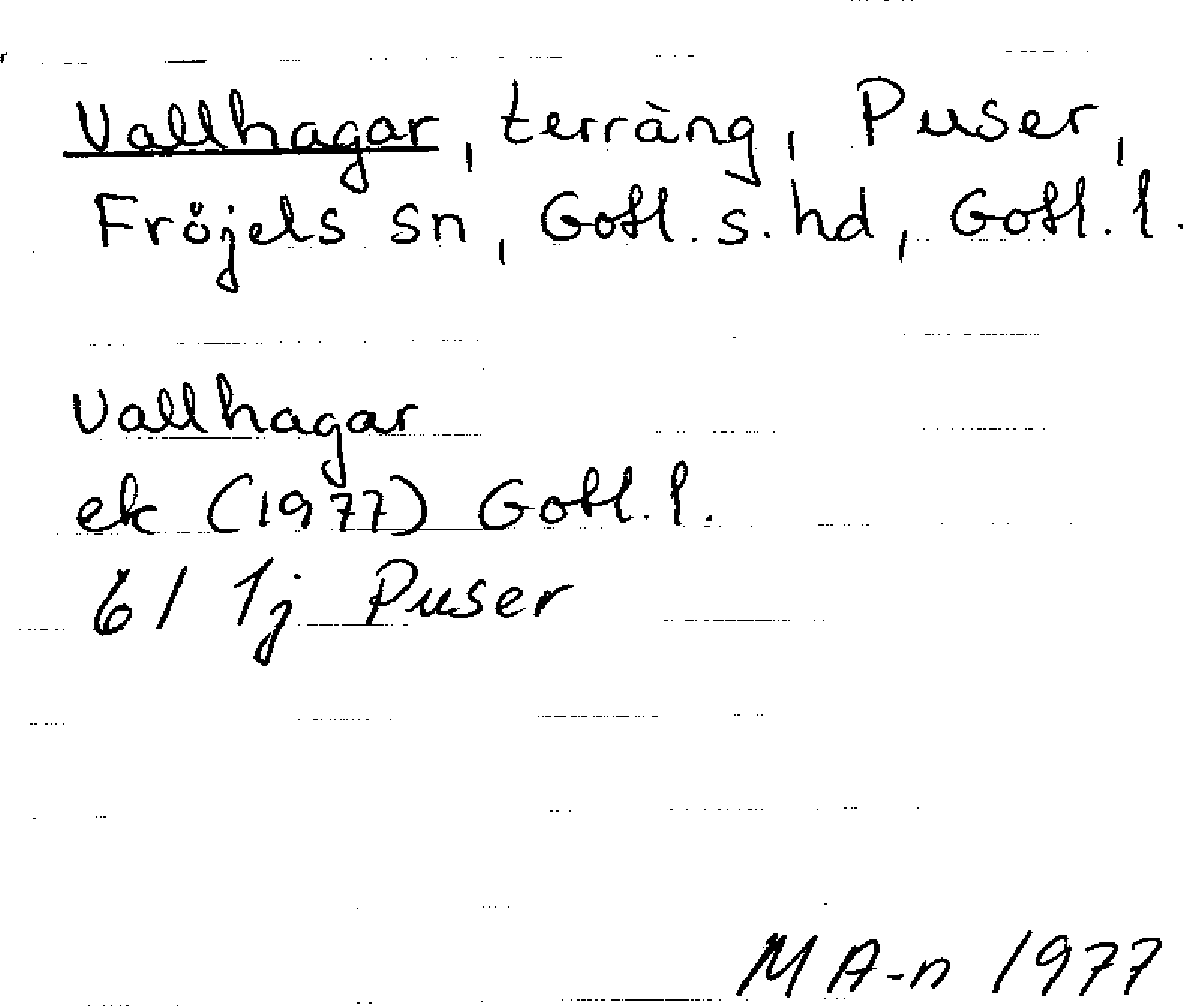 Vallhagar, terräng, Puser,
Fröjels sn, Gotl. s. hd, Gotl. l.
Vallhagar
ek (1977) Gotl. l.
6I 1j Puser
M A-n 1977